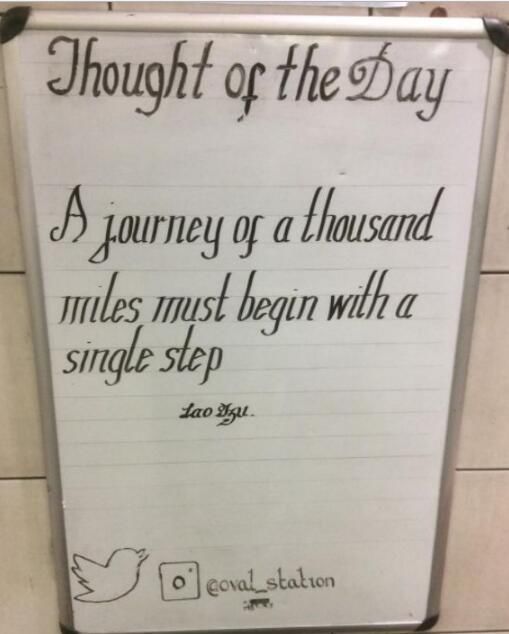 Thought of the Day
A journey of a thousand
miles must begin with a
single step
Lao Tzu.
@oval_station